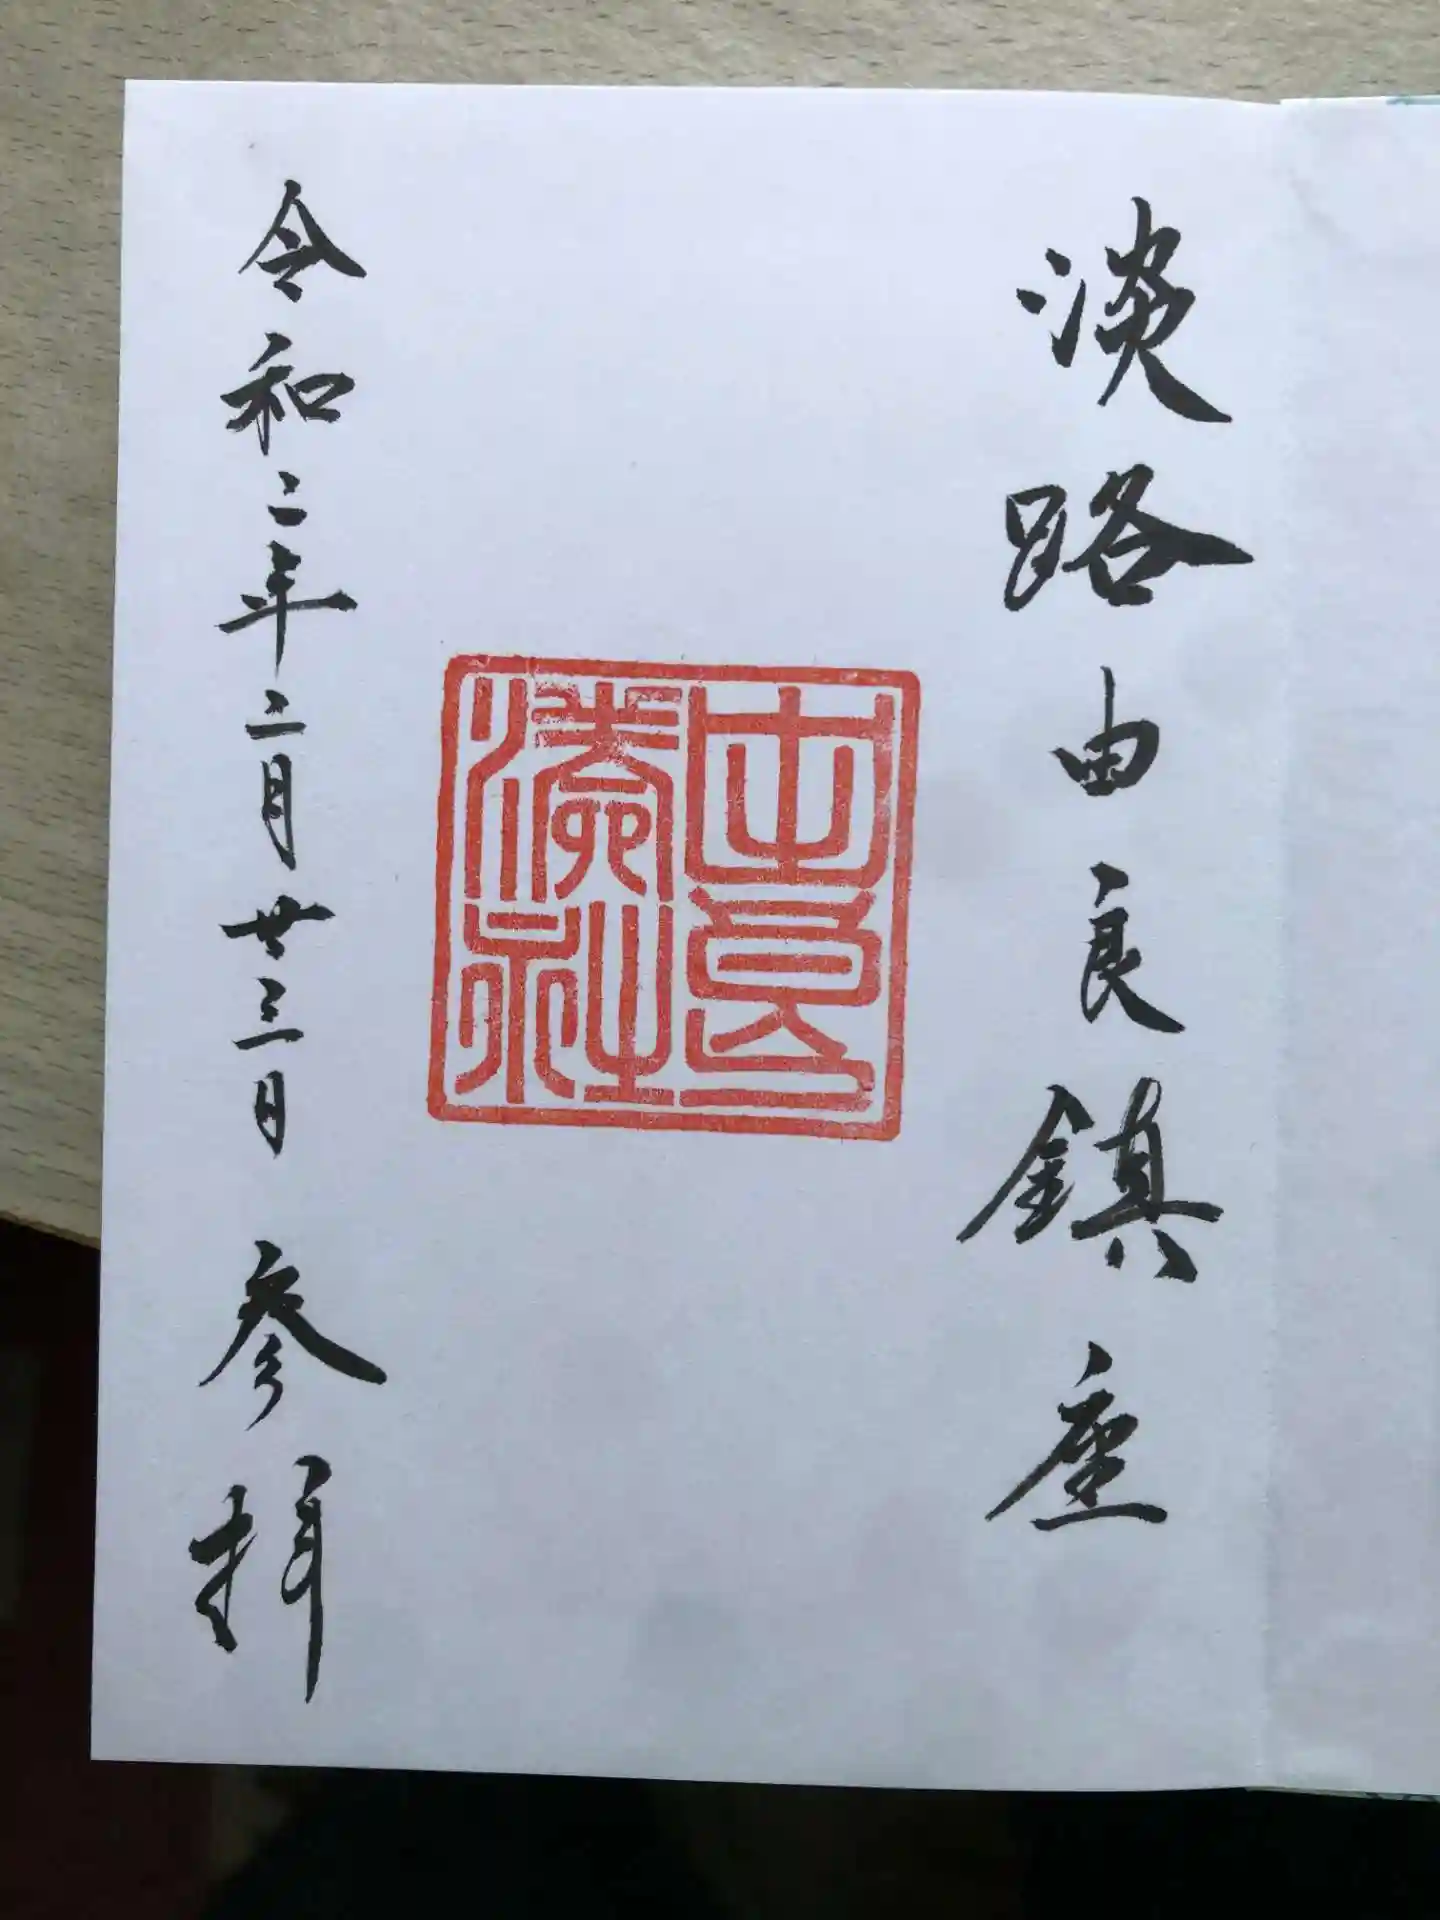 淡路由良鎮座
由良
湊社
令和二年二月廿三日 参拝